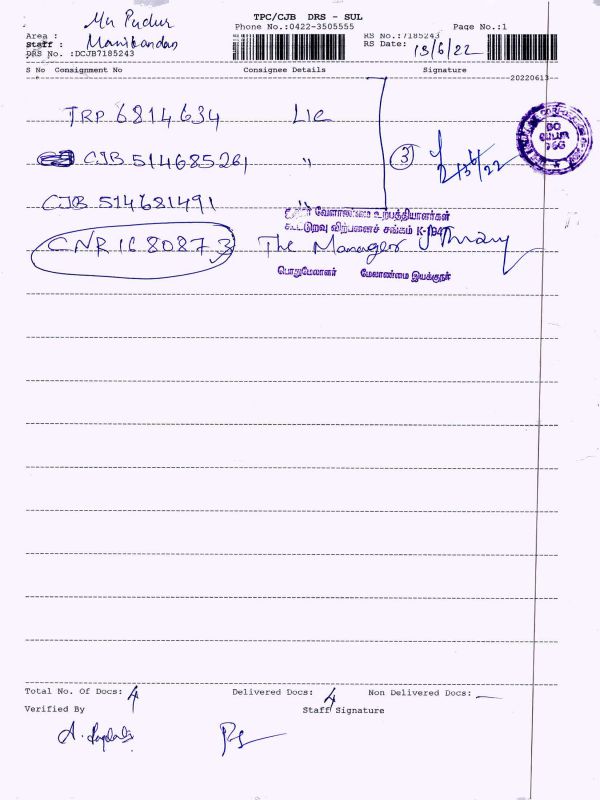 TPC/CJB DRS - SUL
Phone No.:0422-3505555 Page No.:1
Area :
Staff : Manikandan
DRS No. :DCJB7185243
RS No.:7185243
RS Date: 13/6/22
S No Consignment No Consignee Details Signature
20220613
TRP 6814634 LIC
CJB 514685261 "
③ 13/6/22
CJB 514681491
CNR 16 80873 The Manager
வேளாண்மை உற்பத்தியாளர்கள்
கூட்டுறவு விற்பனைச் சங்கம்
பொதுமேலாளர் மேலாண்மை இயக்குநர்
Total No. Of Docs: 4 Delivered Docs: 4 Non Delivered Docs: —
Verified By Staff Signature